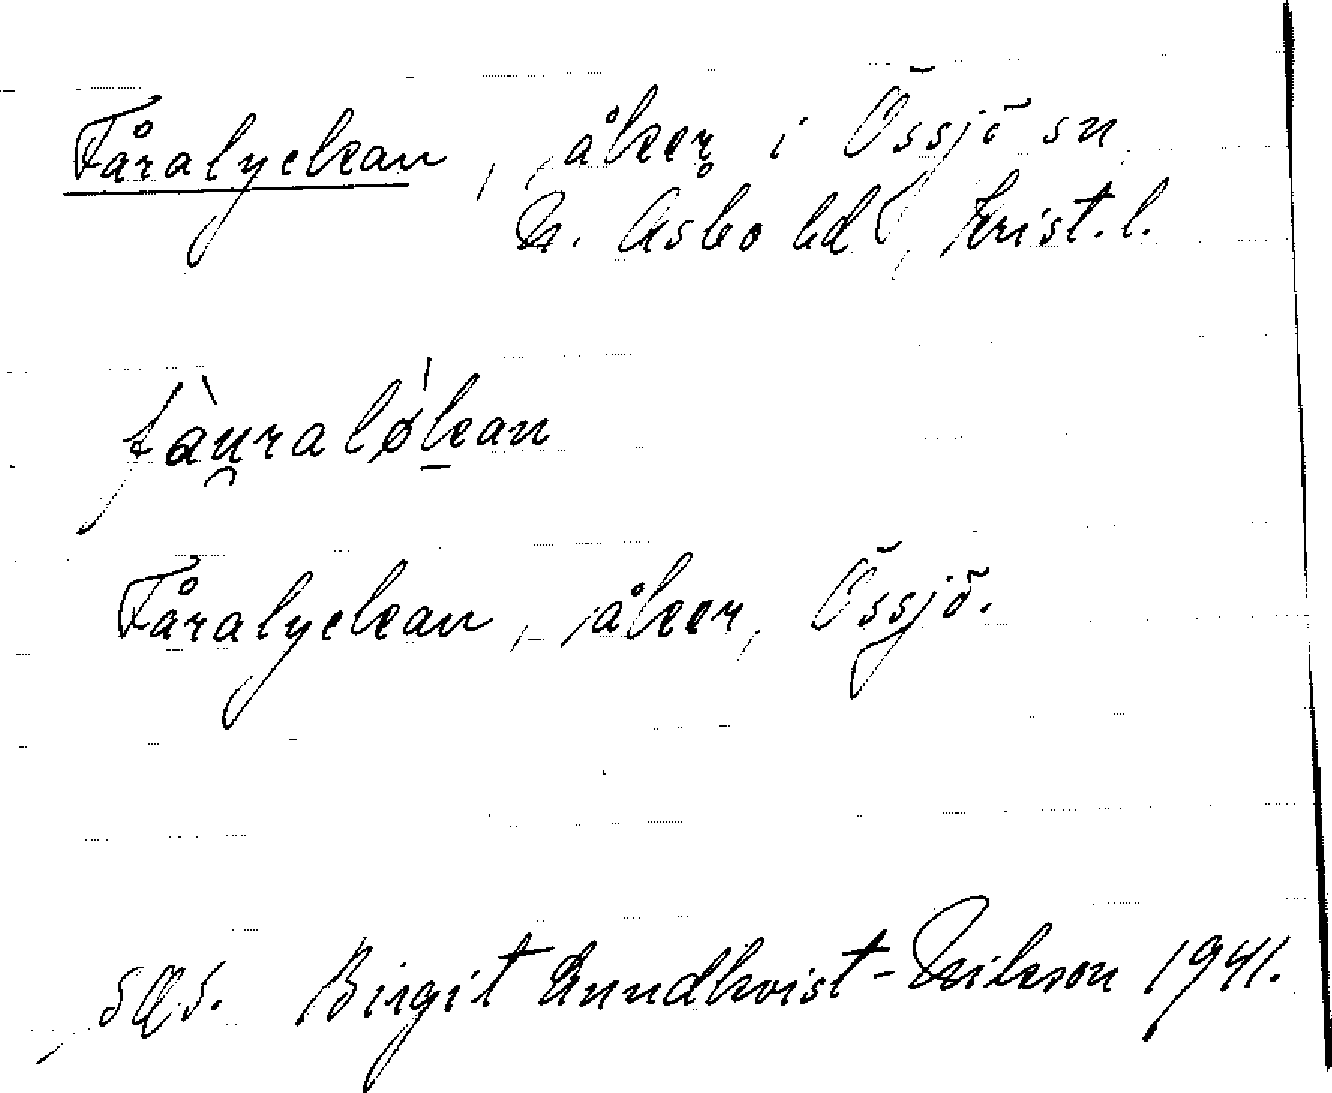 Fåralyckan, åker i Össjö sn
N. Åsbo hd, Krist. l.
fàu̯ralø̀kan
Fåralyckan, åker, Össjö.
Birgit Lundkvist-Nilsson 1941.